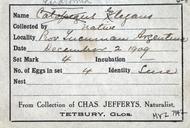 Name Catoptrus Elegans
Collected by Native
Locality Nr Tucuman Argentina
Date December 2 1909
Set Mark 4 Incubation
No. of Eggs in set 4 Identity Sure
From Collection of CHAS. JEFFERYS, Naturalist,
TETBURY, Glos.